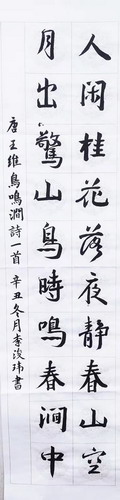 人闲桂花落夜静春山空
月出驚山鳥時鳴春澗中
唐王維鳥鳴澗詩一首 辛丑冬月李浚玮書